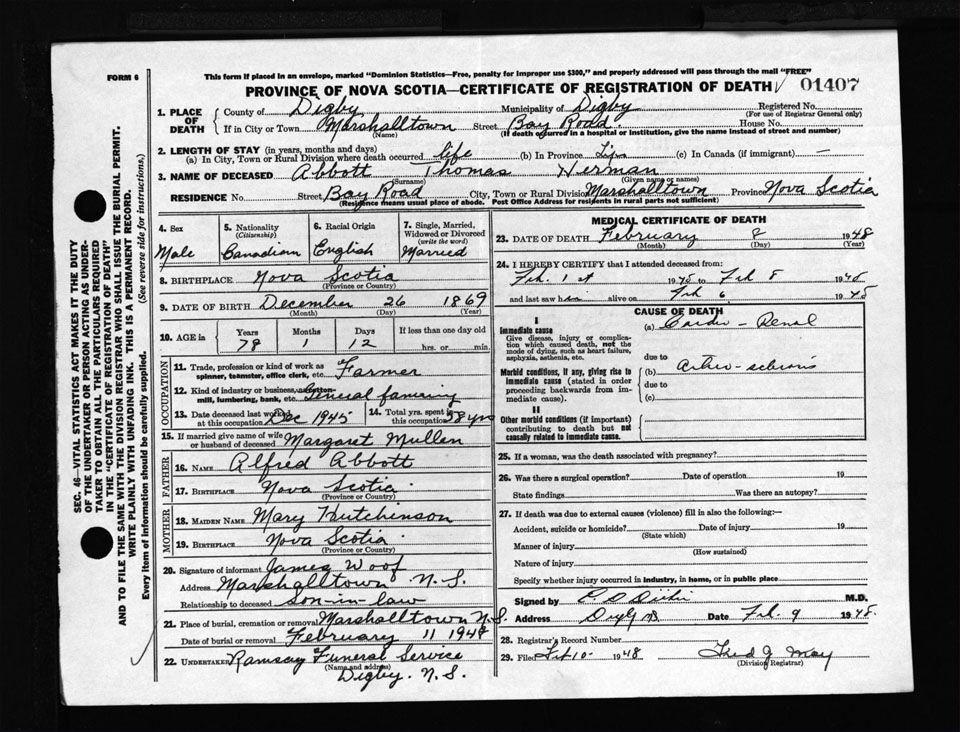 FORM 6
This form if placed in an envelope, marked "Dominion Statistics—Free, penalty for improper use $300," and properly addressed will pass through the mail "FREE"
PROVINCE OF NOVA SCOTIA—CERTIFICATE OF REGISTRATION OF DEATH 01407
1. PLACE OF DEATH County of Digby Municipality of Digby Registered No. (For use of Registrar General only)
If in City or Town Marshalltown (Name) Street Bay Road House No.
(If death occurred in a hospital or institution, give the name instead of street and number)
2. LENGTH OF STAY (in years, months and days)
(a) In City, Town or Rural Division where death occurred life (b) In Province Life (c) In Canada (if immigrant) —
3. NAME OF DECEASED Abbott Thomas Herman
(Surname) (Given name or names)
RESIDENCE No. Street Bay Road City, Town or Rural Division Marshalltown Province Nova Scotia
(Residence means usual place of abode. Post Office Address for residents in rural parts not sufficient)
4. Sex Male
5. Nationality (Citizenship) Canadian
6. Racial Origin English
7. Single, Married, Widowed or Divorced (write the word) Married
8. BIRTHPLACE Nova Scotia
(Province or Country)
9. DATE OF BIRTH December 26 1869
(Month) (Day) (Year)
10. AGE in Years Months Days If less than one day old
78 1 12 hrs. or min.
OCCUPATION
11. Trade, profession or kind of work as spinner, teamster, office clerk, etc. Farmer
12. Kind of industry or business, as cotton-mill, lumbering, bank, etc. General farming
13. Date deceased last worked at this occupation Dec 1945 14. Total yrs. spent in this occupation 58 yrs
15. If married give name of wife or husband of deceased Margaret Mullen
FATHER
16. NAME Alfred Abbott
17. BIRTHPLACE Nova Scotia
(Province or Country)
MOTHER
18. MAIDEN NAME Mary Hutchinson
19. BIRTHPLACE Nova Scotia
(Province or Country)
20. Signature of informant James Woof
Address Marshalltown N.S.
Relationship to deceased son-in-law
21. Place of burial, cremation or removal Marshalltown N.S.
Date of burial or removal February 11 1948
22. UNDERTAKER Ramsay Funeral Service
(Name and address)
Digby. N.S.
MEDICAL CERTIFICATE OF DEATH
23. DATE OF DEATH February 8 1948
(Month) (Day) (Year)
24. I HEREBY CERTIFY that I attended deceased from:
Feb. 1st 1948 to Feb 8 1948
and last saw him alive on Feb 6 1948
CAUSE OF DEATH
I
Immediate cause
Give disease, injury or complication which caused death, not the mode of dying, such as heart failure, asphyxia, asthenia, etc.
(a) Cardio-Renal
due to
Morbid conditions, if any, giving rise to immediate cause (stated in order proceeding backwards from immediate cause).
(b) Arterio-sclerosis
due to
(c)
II
Other morbid conditions (if important) contributing to death but not causally related to immediate cause.
25. If a woman, was the death associated with pregnancy?
26. Was there a surgical operation? Date of operation 19
State findings Was there an autopsy?
27. If death was due to external causes (violence) fill in also the following:—
Accident, suicide or homicide? Date of injury 19
(State which)
Manner of injury
(How sustained)
Nature of injury
Specify whether injury occurred in industry, in home, or in public place
Signed by M.D.
Address Digby NS Date Feb. 9 1948
28. Registrar's Record Number
29. Filed Feb 10 - 1948 Fred J May
(Division Registrar)
SEC. 46—VITAL STATISTICS ACT MAKES IT THE DUTY
OF THE UNDERTAKER OR PERSON ACTING AS UNDER-
TAKER TO OBTAIN ALL THE PARTICULARS REQUIRED
IN THE "CERTIFICATE OF REGISTRATION OF DEATH"
AND TO FILE THE SAME WITH THE DIVISION REGISTRAR WHO SHALL ISSUE THE BURIAL PERMIT.
WRITE PLAINLY WITH UNFADING INK. THIS IS A PERMANENT RECORD.
Every item of information should be carefully supplied. (See reverse side for instructions.)